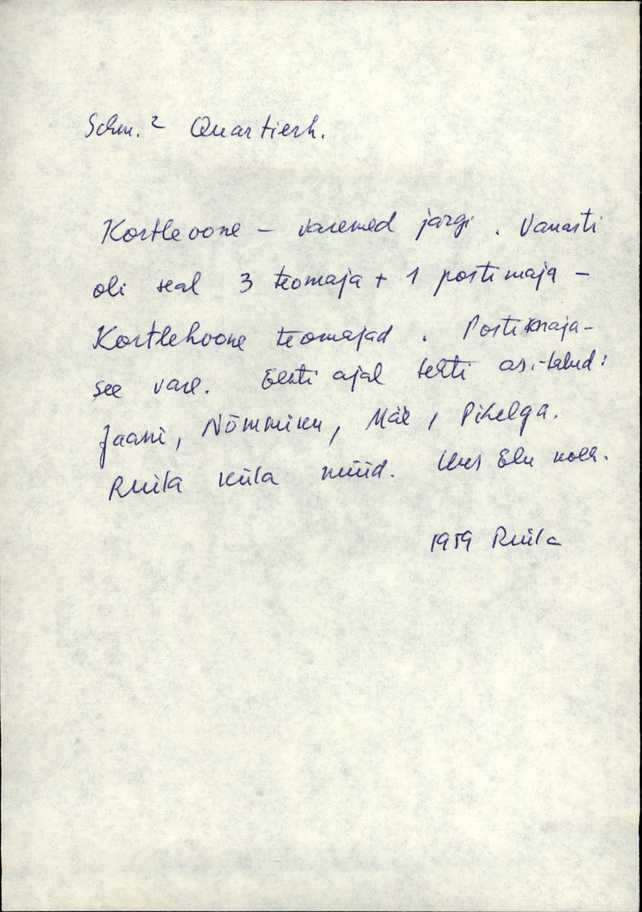 Schm.² Quartierh.
Kortlevoone - varemed järgi. Vanasti
oli seal 3 teomaja + 1 postimaja -
Kortlehoone teomajad. Postimaja-
see vare. Eesti ajal tehti as.-talud:
Jaani, Nõmmiku, Mäe, Pihelga.
Ruila küla nüüd. Uus Elu kolh.
1959 Ruila